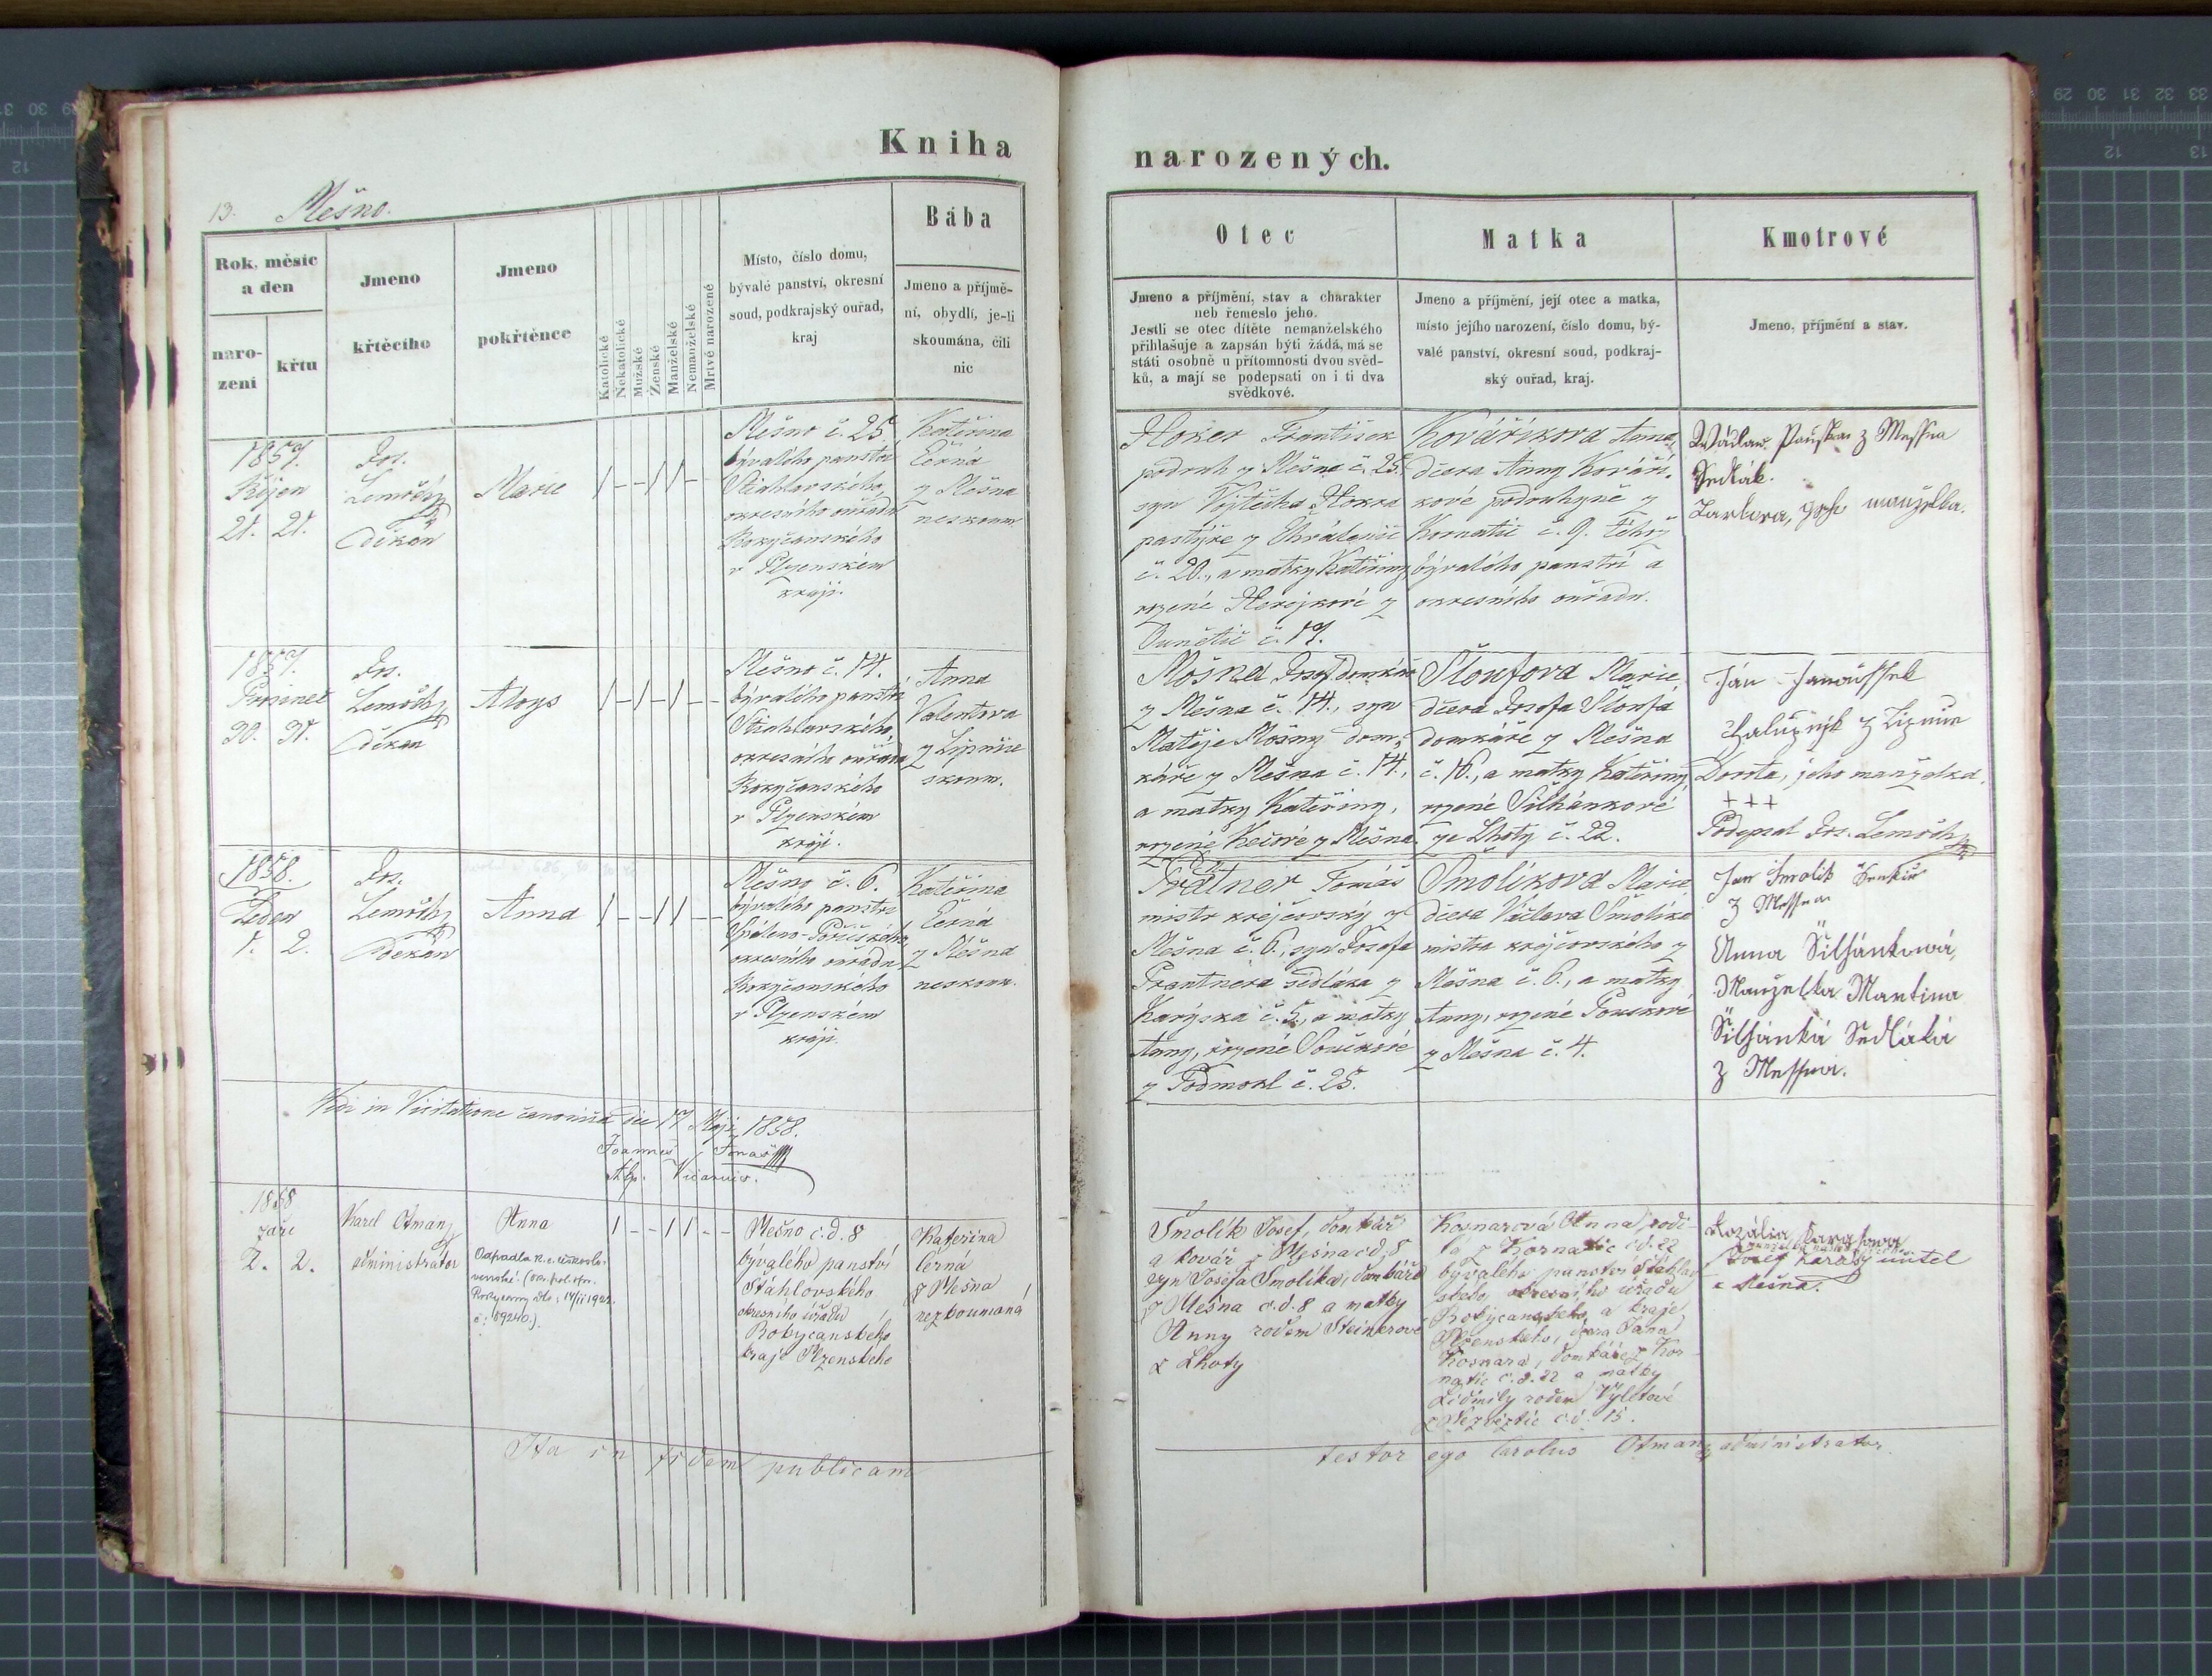 Kniha
narozených.
13. Mešno.
Rok, měsíc
a den
naro-
zení
křtu
Jmeno
křtěcího
Jmeno
pokřtěnce
Katolické
Nekatolické
Mužské
Ženské
Manželské
Nemanželské
Mrtvě narozené
Místo, číslo domu,
bývalé panství, okresní
soud, podkrajský ouřad,
kraj
Bába
Jmeno a příjmě-
ní, obydlí, je-li
skoumána, čili
nic
Otec
Jmeno a příjmění, stav a charakter
neb řemeslo jeho.
Jestli se otec dítěte nemanželského
přihlašuje a zapsán býti žádá, má se
státi osobně u přítomnosti dvou svěd-
ků, a mají se podepsati on i ti dva
svědkové.
Matka
Jmeno a příjmění, její otec a matka,
místo jejího narození, číslo domu, bý-
valé panství, okresní soud, podkraj-
ský ouřad, kraj.
Kmotrové
Jmeno, příjmění a stav.
1857.
Říjen
21. 21.
Jos.
děkan
Marie
Mešno č. 25
bývalého panství
Štiahlavského,
okresního ouřadu
Rokyčanského
v Plzenském
kraji.
Kateřina
Černá
z Mešna
neskoum
František
podruh z Mešna č. 25.
syn Vojtěcha
pastýře z
č. 20., a matky Kateřiny,
rozené
č. 17.
Kovářikova Anna,
dcera Anny Kováři-
kové podruhyně z
Kornatic č. 9. téhož
bývalého panství a
okresního ouřadu.
z Messna
Sedlák.
manželka.
1857.
Prosinec
30. 31.
Jos.
děkan
Aloys
Mešno č. 14.
bývalého panství
Štiahlavského,
okresního ouřadu
Rokyčanského
v Plzenském
kraji.
Anna
Valentova
z Lipnice
skoum.
Mošna Josef domkář
z Mešna č. 14., syn
Matěje Mošny dom-
káře z Mešna č. 14.,
a matky Kateřiny,
rozené z Mešna.
Šloufova Marie
dcera Josefa Šloufa
domkáře z Mešna
č. 16., a matky Kateřiny,
rozené Silhánkové
ze Lhoty č. 22.
Ján
z
Dorota, jeho manželka.
+++
Podepsal Jos.
1858.
Leden
1. 2.
Jos.
děkan
Anna
Mešno č. 6.
bývalého panství
Spáleno-Pořičského,
okresního ouřadu
Rokyčanského
v Plzenském
kraji.
Kateřina
Černá
z Mešna
neskoum.
Tomáš
mistr krejčovský z
Mešna č. 6., syn Josefa
Prantnera sedláka z
č. 5., a matky
Anny, rozené Součkové
z Podmokl č. 25.
Smolíkova Marie
dcera Václava Smolíka
mistra krejčovského z
Mešna č. 6., a matky
Anny, rozené
z Mešna č. 4.
Jan Smolik
z Messna
Anna Šilhánková,
Manželka Martina
Šilhánka Sedláka
z Messna.
Vidi in Visitatione canonica die 17 Maji 1858.
Joannes
Vicarius.
1858
září
2. 2.
Karel Otmanz
administrátor
Anna
Odpadla k c. českoslo-
venské. (ok. pol. spr.
Rokycany dto: 14/II 1922.
č: 69240.)
Mešno č.d. 8
bývalého panství
Štáhlovského
okresního úřadu
Rokycanského
kraje Plzenského
Kateřina
černá
z Mešna
nezkoumaná
Smolik Josef, domkář
a kovář z Mešna č.d. 8
syn Josefa Smolika, domkáře
z Mešna č.d. 8 a matky
Anny rodem Steinerové
z Lhoty
Kosnarová Anna rodi-
lá z Kornatic č.d. 22
bývalého panství Štáhlav
ského, okresního úřadu
Rokycanského a kraje
Plzenského, dcera Jana
Kosnara, domkáře z Kor-
natic č.d. 22 a matky
Lidmily rodem Výletové
č.d. 15.
Rozálie
Josef učitel
z Mešna.
Ita in fidem publicam
testor ego Carolus Otmanz administrator.